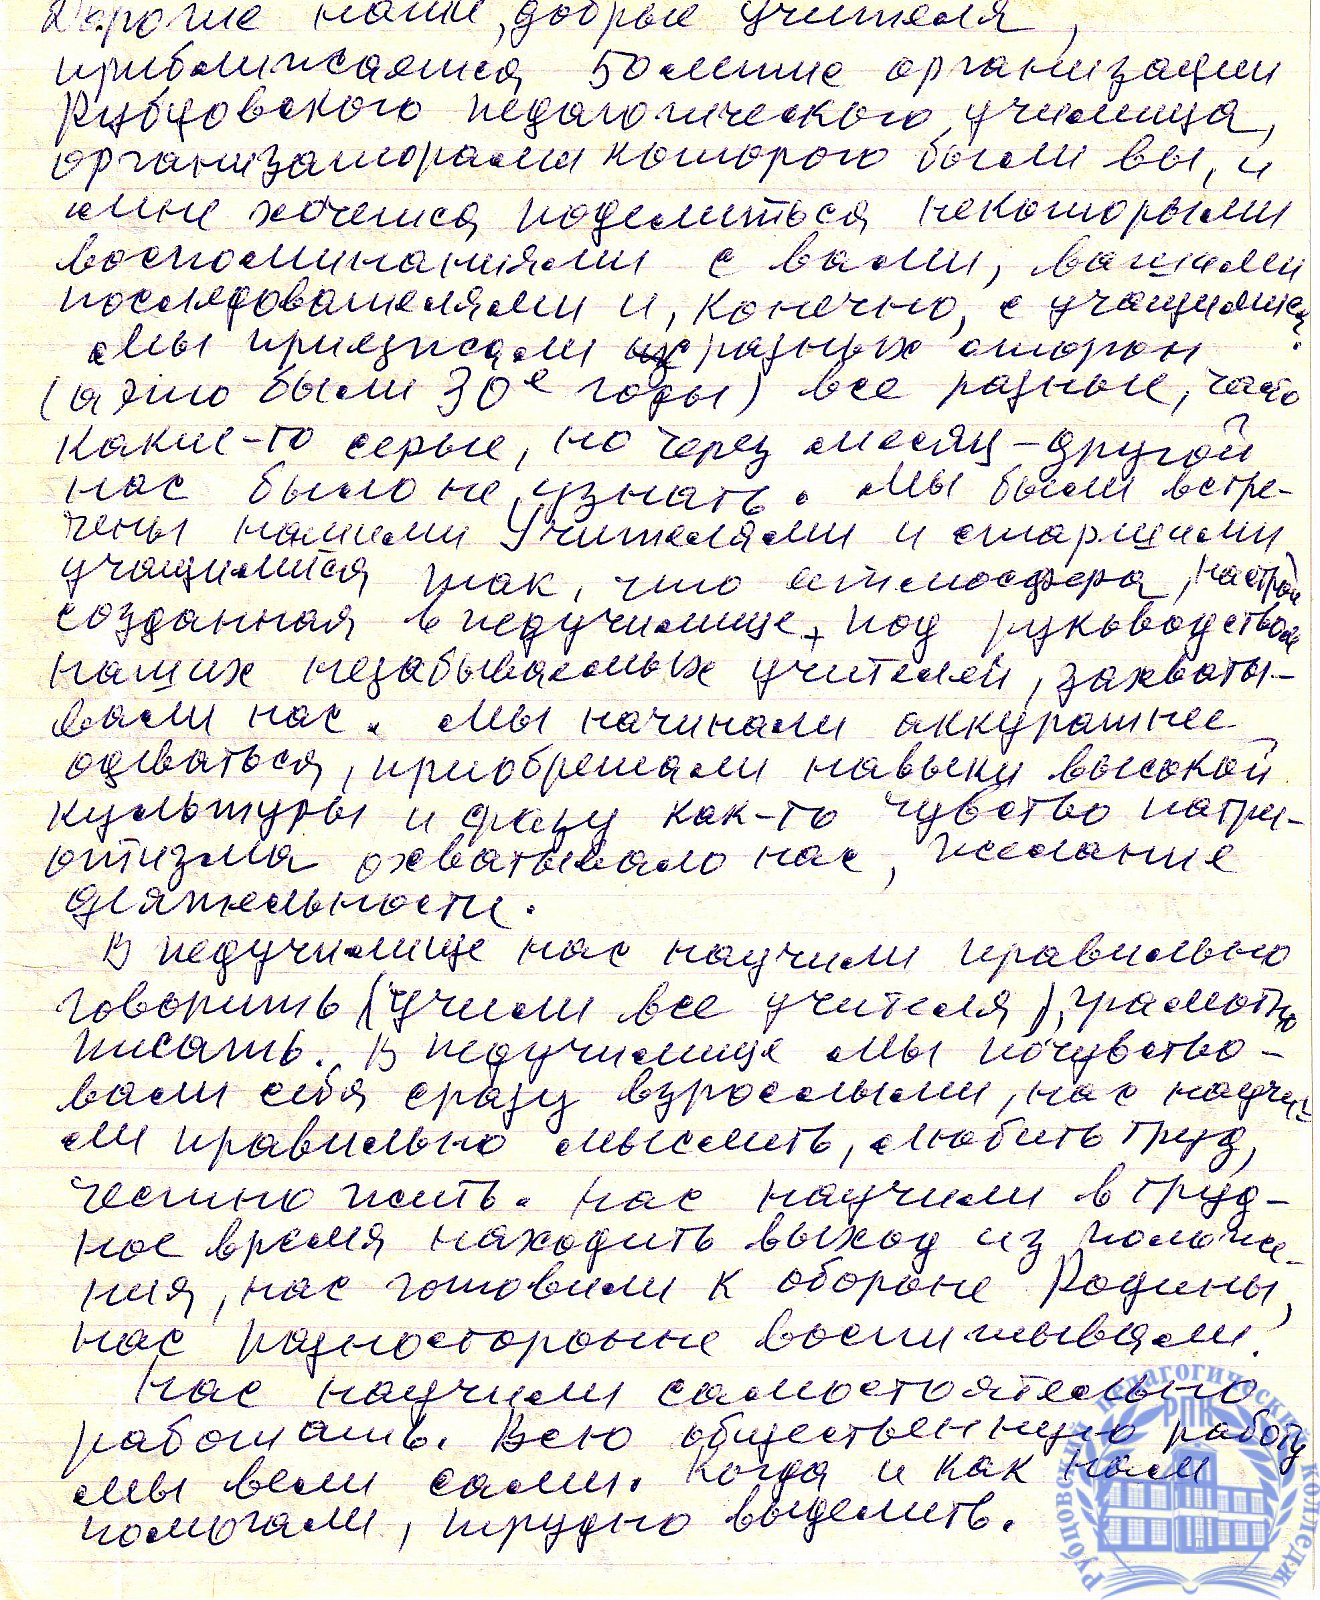 Дорогие наши, добрые учителя,
приближается 50летие организации
Рубцовского педагогического училища,
организаторами которого были вы, и
мне хочется поделиться некоторыми
воспоминаниями с вами, вашими
последователями и, конечно, с учащимися.
Мы приезжали из разных сторон
(а это были 30е годы) все разные, часто
какие-то серые, но через месяц-другой
нас было не узнать. Мы были встре-
чены нашими Учителями и старшими
учащимися так, что атмосфера, настрой
созданная в педучилище, под руководством
наших незабываемых учителей, захваты-
вали нас. Мы начинали аккуратнее
одеваться, приобретали навыки высокой
культуры и сразу как-то чувство патри-
отизма охватывало нас, желание
деятельности.
В педучилище нас научили правильно
говорить (учили все учителя), грамотно
писать. В педучилище мы почувство-
вали себя сразу взрослыми, нас научи-
ли правильно мыслить, любить труд,
честно жить. Нас научили в труд-
ное время находить выход из положе-
ния, нас готовили к обороне Родины,
нас разносторонне воспитывали.
Нас научили самостоятельно
работать. Всю общественную работу
мы вели сами. Когда и как нам
помогали, трудно выделить.
Рубцовский педагогический колледж
РПК